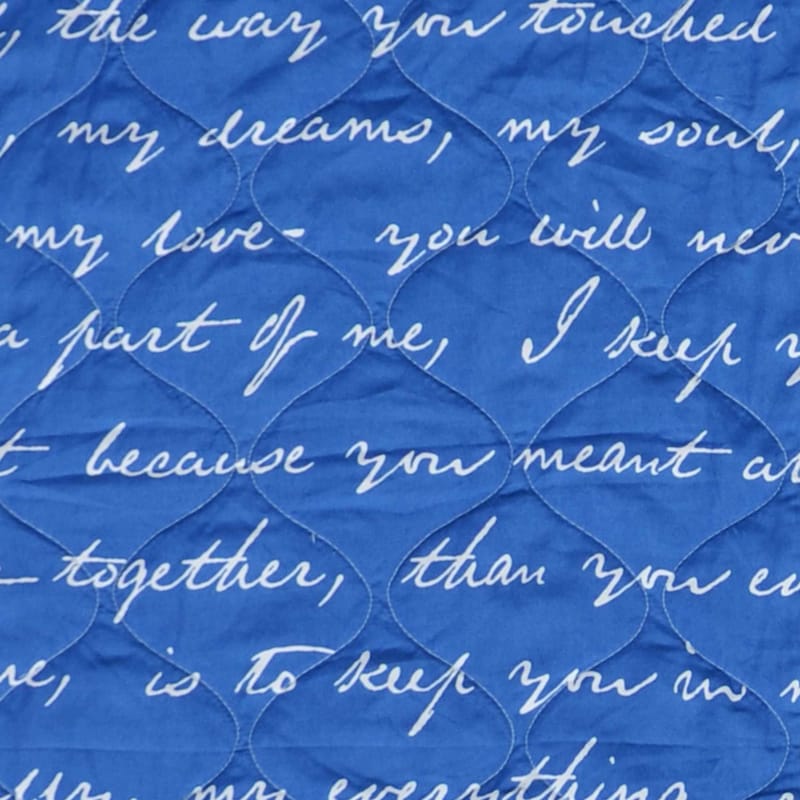 the way you touched
, my dreams, my soul,
my love- you will nev
a part of me, I keep y
t because you meant al
together, than you ev
re, is to keep you in m
my everything